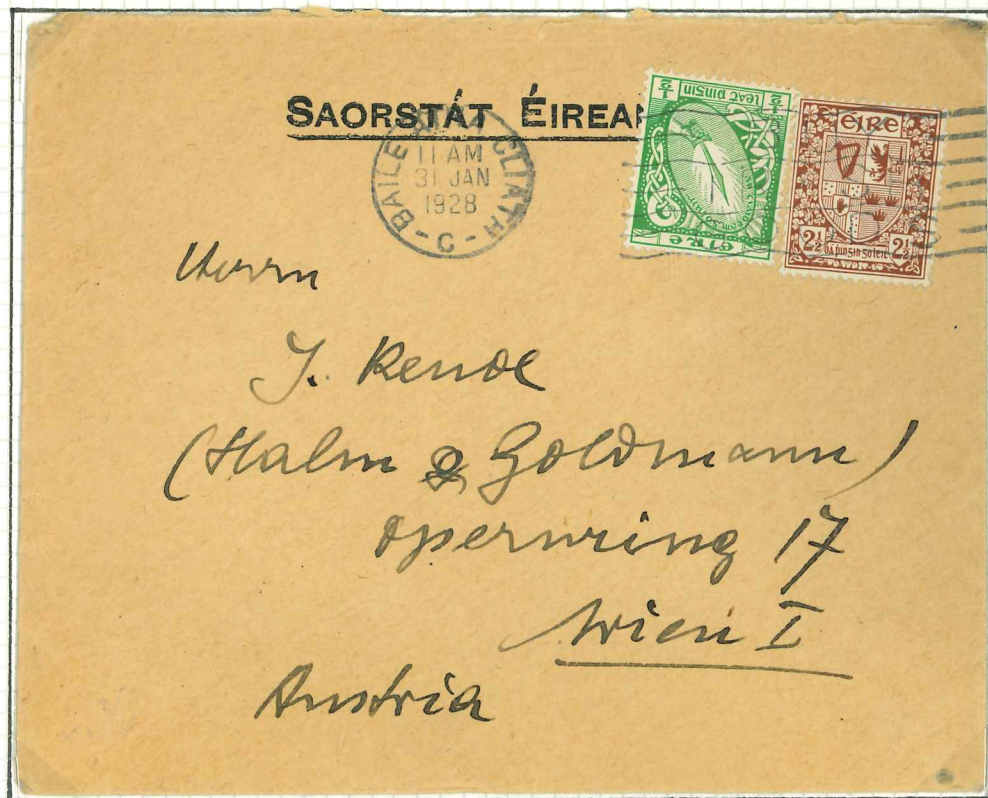 SAORSTÁT ÉIREAN
BAILE ÁTA CLIATH
11 AM
31 JAN
1928
- C -
½ leat pingin ½
éire
éIRE
2½ dá pingin go leit 2½
Herrn
J. Rende
(Halm & Goldmann)
Opernring 17
Wien I
Austria